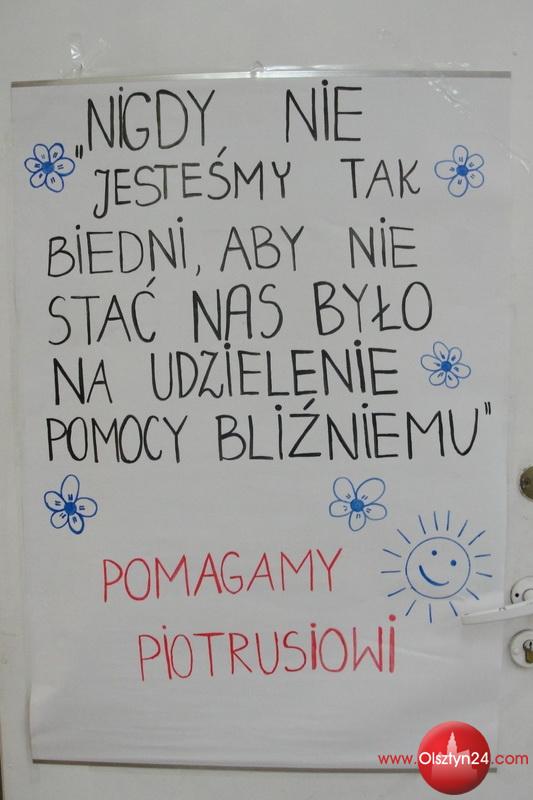 "NIGDY NIE
JESTEŚMY TAK
BIEDNI, ABY NIE
STAĆ NAS BYŁO
NA UDZIELENIE
POMOCY BLIŹNIEMU"
POMAGAMY
PIOTRUSIOWI
www.Olsztyn24.com